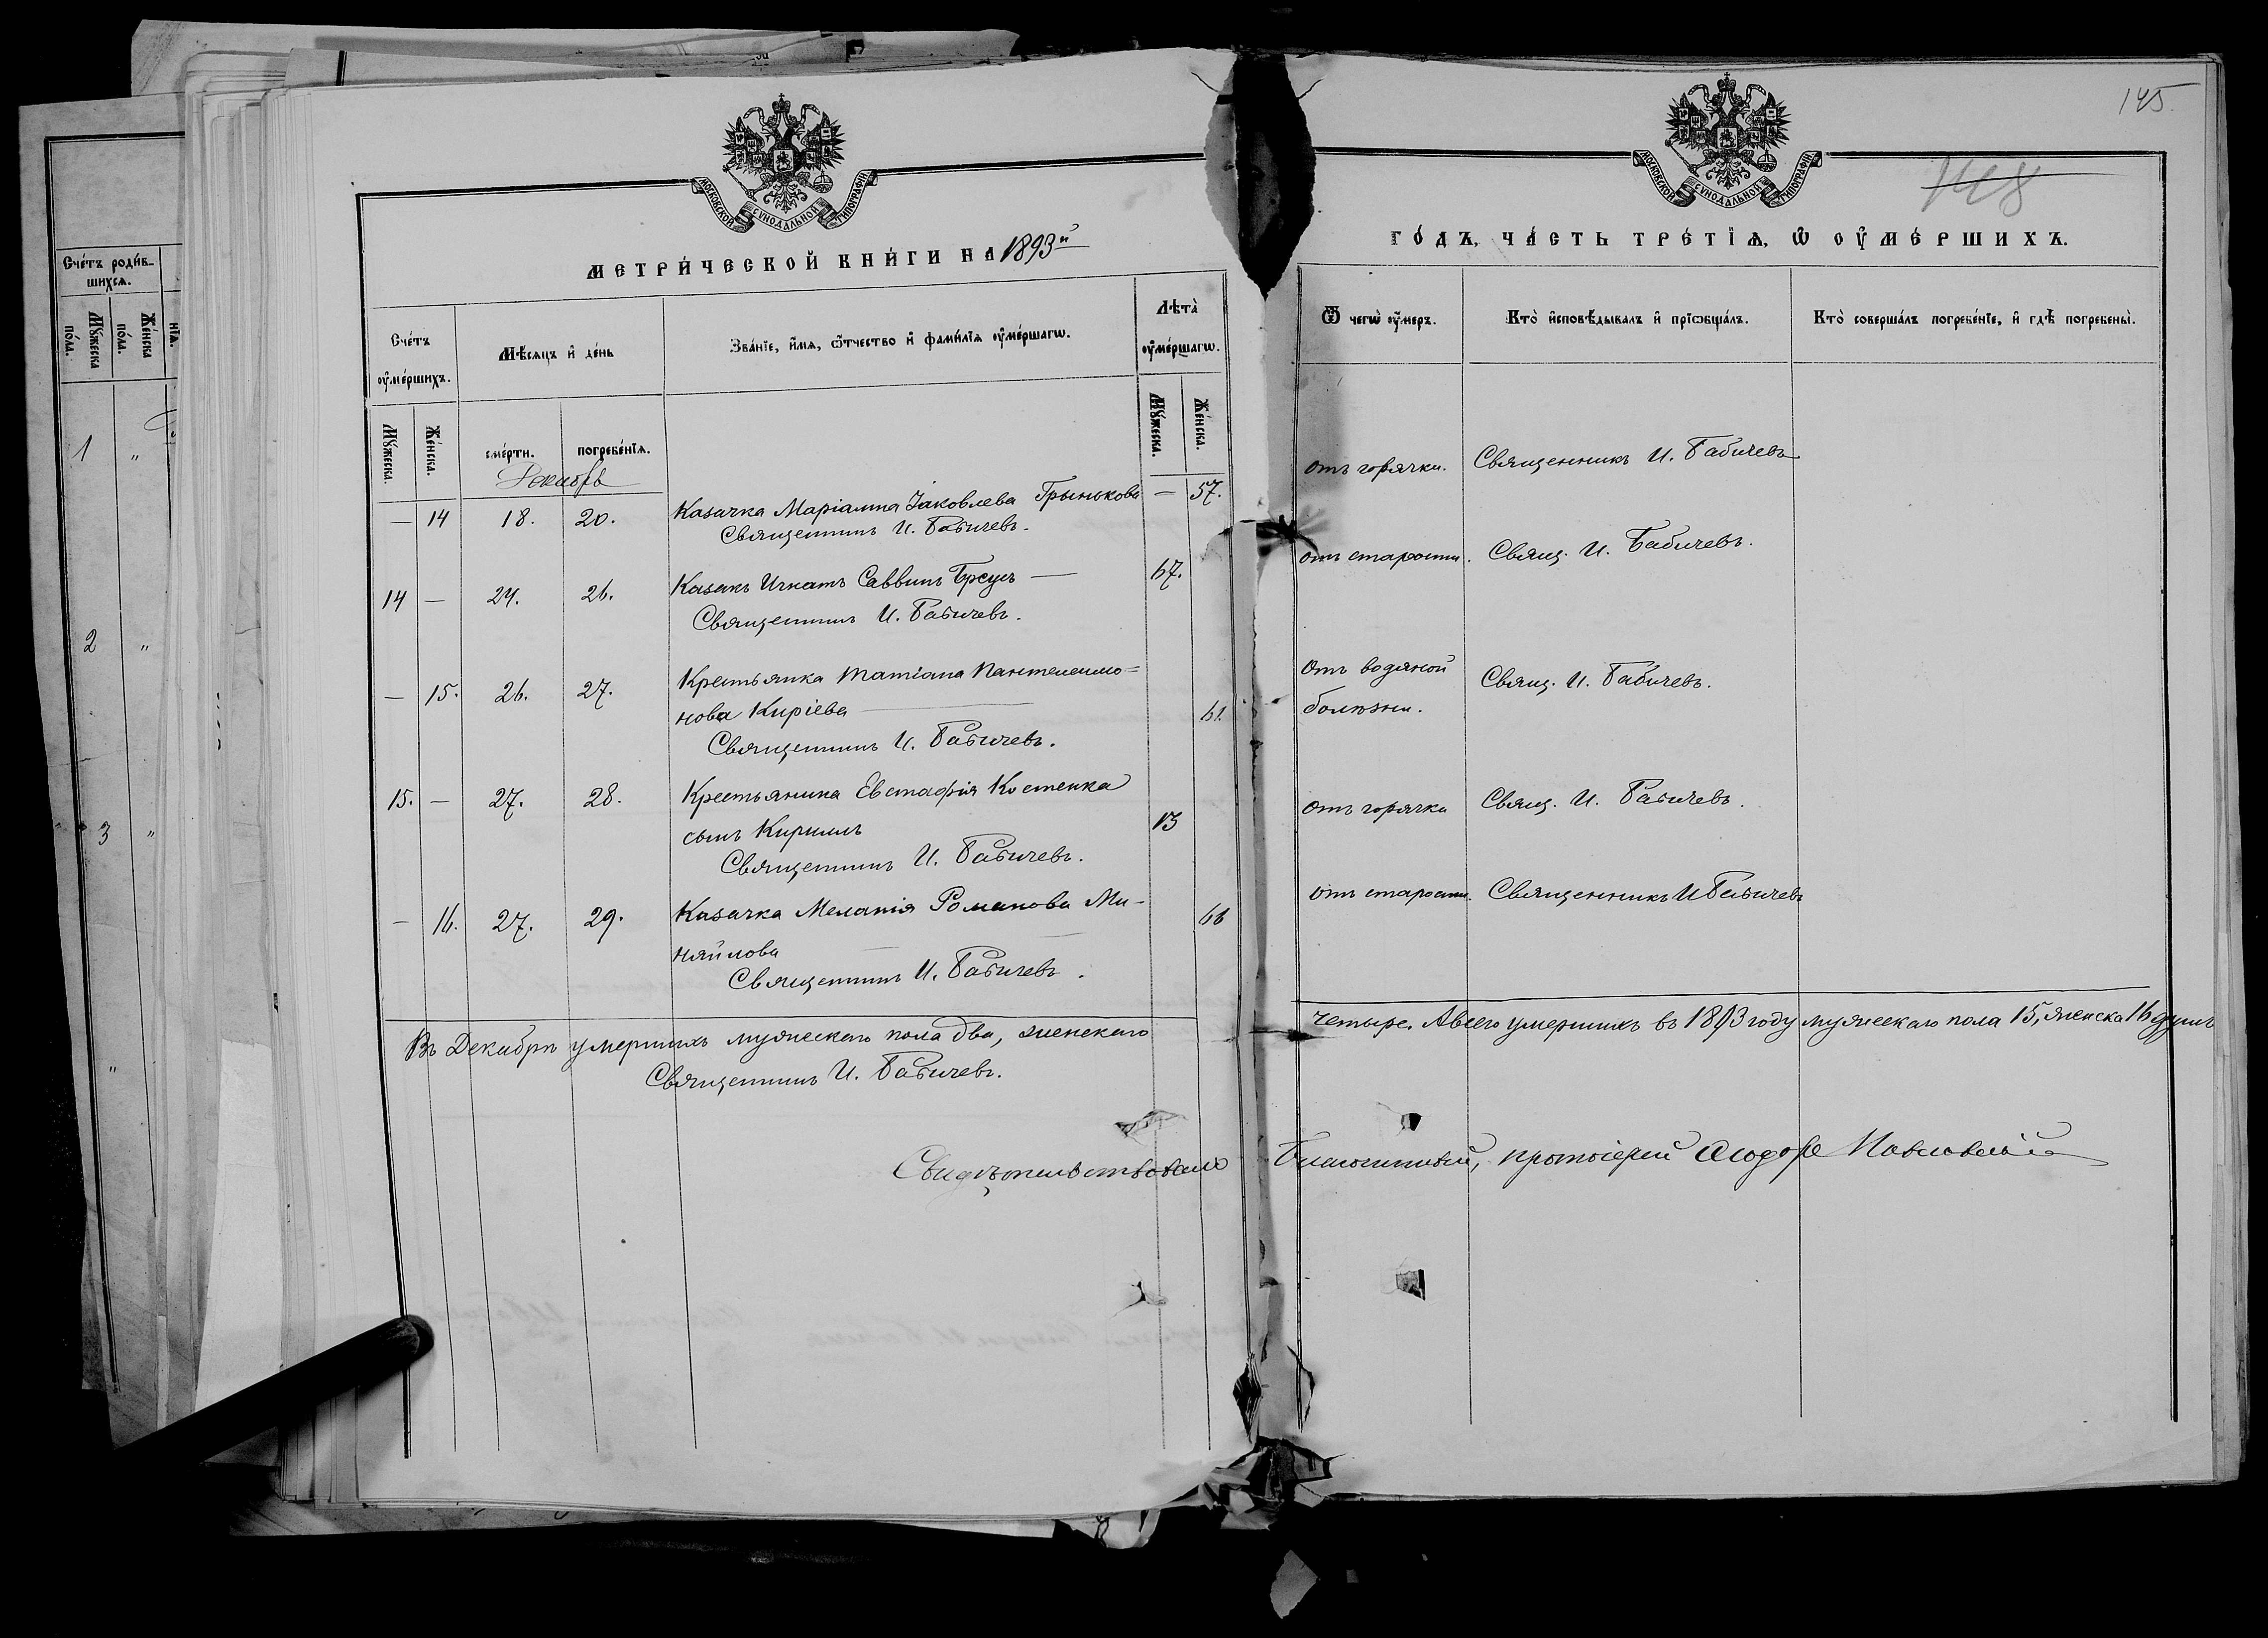 Счетъ родив-
шихся.
Мужеска
пола.
Женска
пола.
1 "
2 "
3 "
"
МОСКОВСКОЙ СѴНОДАЛЬНОЙ ТИПОГРАФІИ
МЕТРИЧЕСКОЙ КНИГИ НА 1893й
Счетъ
оумершихъ.
Мѣсяцъ и день
Званіе, имя, ѿтчество и фамилія оумершагѡ.
Лѣта
оумершагѡ.
Мужеска.
Женска.
смерти.
погребенія.
Мужеска.
Женска.
Декабрь
— 14 18. 20. Казачка Маріамна Іаковлева Грынькова — 57.
Священникъ И. Бабичевъ.
14 — 24. 26. Казакъ Игнатъ Саввинъ Бреусъ — 67.
Священникъ И. Бабичевъ.
— 15. 26. 27. Крестьянка Татіана Пантелеимо=
нова Киріева — 61.
Священникъ И. Бабичевъ.
15. — 27. 28. Крестьянина Евстафія Костенка
сынъ Кириллъ 13
Священникъ И. Бабичевъ.
— 16. 27. 29. Казачка Меланія Романова Ми-
няйлова 66
Священникъ И. Бабичевъ.
Въ Декабрѣ умершихъ мужескаго пола два, женскаго
Священникъ И. Бабичевъ.
Свидѣтельствовалъ
145.
148
МОСКОВСКОЙ СѴНОДАЛЬНОЙ ТИПОГРАФІИ
ГОДЪ, ЧАСТЬ ТРЕТІЯ, Ѡ ОУМЕРШИХЪ.
Ѿ чегѡ оумеръ.
Кто исповѣдывалъ и пріѡбщалъ.
Кто совершалъ погребеніе, и гдѣ погребены.
отъ горячки. Священникъ И. Бабичевъ
отъ старости. Свящ. И. Бабичевъ.
Отъ водяной Свящ. И. Бабичевъ.
болѣзни.
отъ горячки Свящ. И. Бабичевъ.
отъ старости. Священникъ И Бабичевъ
четыре. А всего умершихъ въ 1893 году мужескаго пола 15, женска 16 душъ
Благочинный, протоіерей Ѳеодоръ